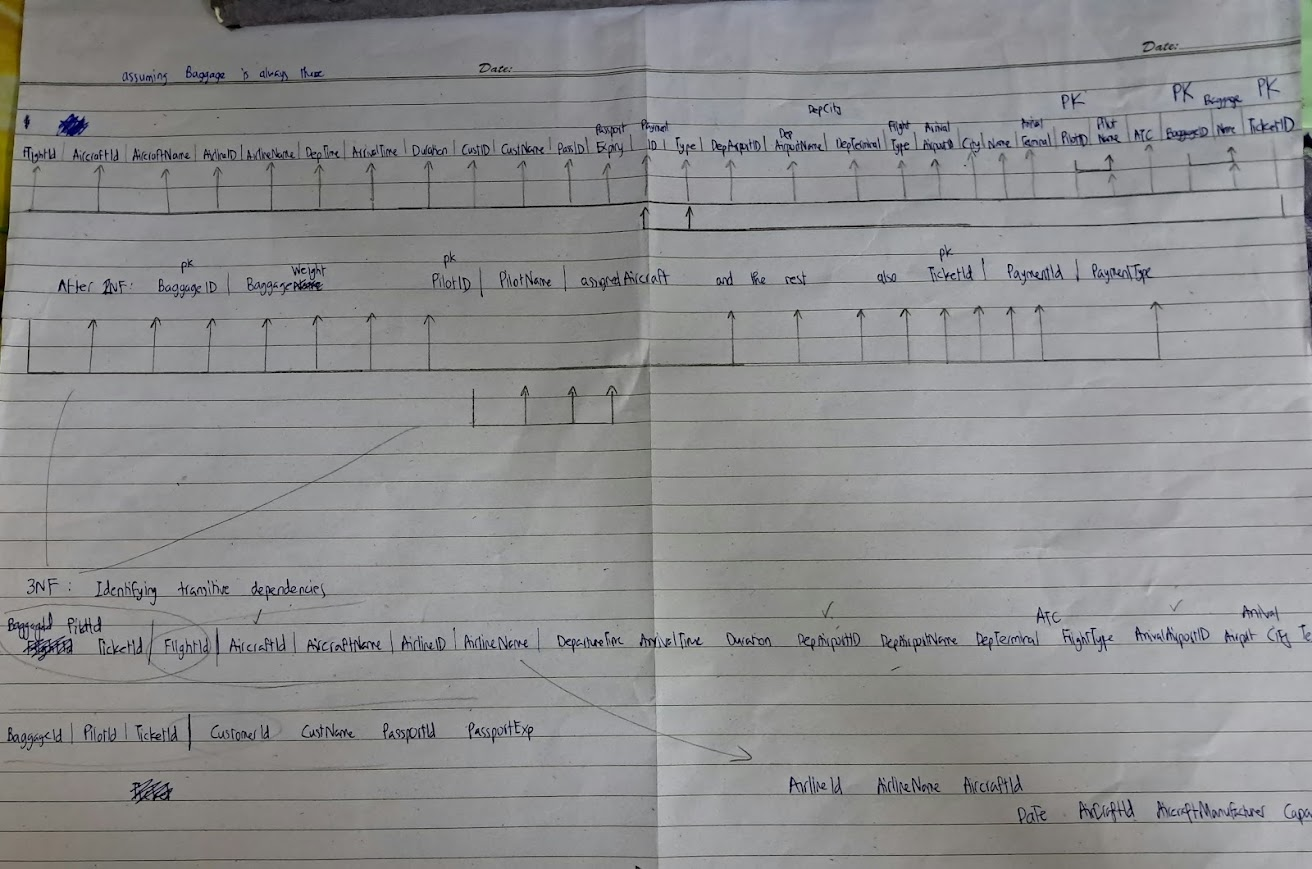 Date:
assuming Baggage is always there Date:
DepCity PK PK Baggage PK
Passport Payment Dep Flight Arrival Arrival Pilot
FlightId | AircraftId | AircraftName | AirlineID | AirlineName | DepTime | ArrivalTime | Duration | CustID | CustName | PassID | Expiry | ID | Type | DepAirportID | AirportName | DepTerminal | Type | AirportID | City | Name | Terminal | PilotID | Name | ATC | BaggageID | Name | TicketID
pk Weight pk pk
After 2NF: BaggageID | Baggage PilotID | PilotName | assignedAircraft and the rest also TicketId | PaymentId | PaymentType
3NF: Identifying transitive dependencies
BaggageId PilotId ATC Arrival
TicketId | FlightId | AircraftId | AircraftName | AirlineID | AirlineName | DepartureTime ArrivalTime Duration DepAirportID DepAirportName DepTerminal FlightType ArrivalAirportID Airport City Te
BaggageId | PilotId | TicketId | CustomerId CustName PassportId PassportExp
AirlineId AirlineName AircraftId
Date AirCraftId AircraftManufacturer Capa